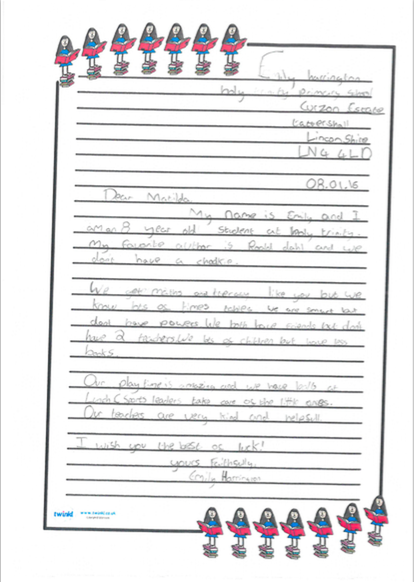 Emily Harrington
Holy Trinity Primary School
Curzon Estate
Tattershall
Lincon Shire
LN4 4LD
08.01.16
Dear Matilda
My Name is Emily and I
am an 8 year old student at holy trinity.
My favorite author is Roald dahl and we
dont have a chockie.
We get maths and like you but we
know lots of times tables we are smart but
dont have powers We both have friends but dont
have 2 teachers. We lots of children but have less
books.
Our playtime is amazing and we have lots of
Lunch Sports leaders take care of the little ones.
Our teachers are very kind and helpfull
I wish you the best of luck!
yours faithfully,
Emily Harrington
twinkl www.twinkl.co.uk